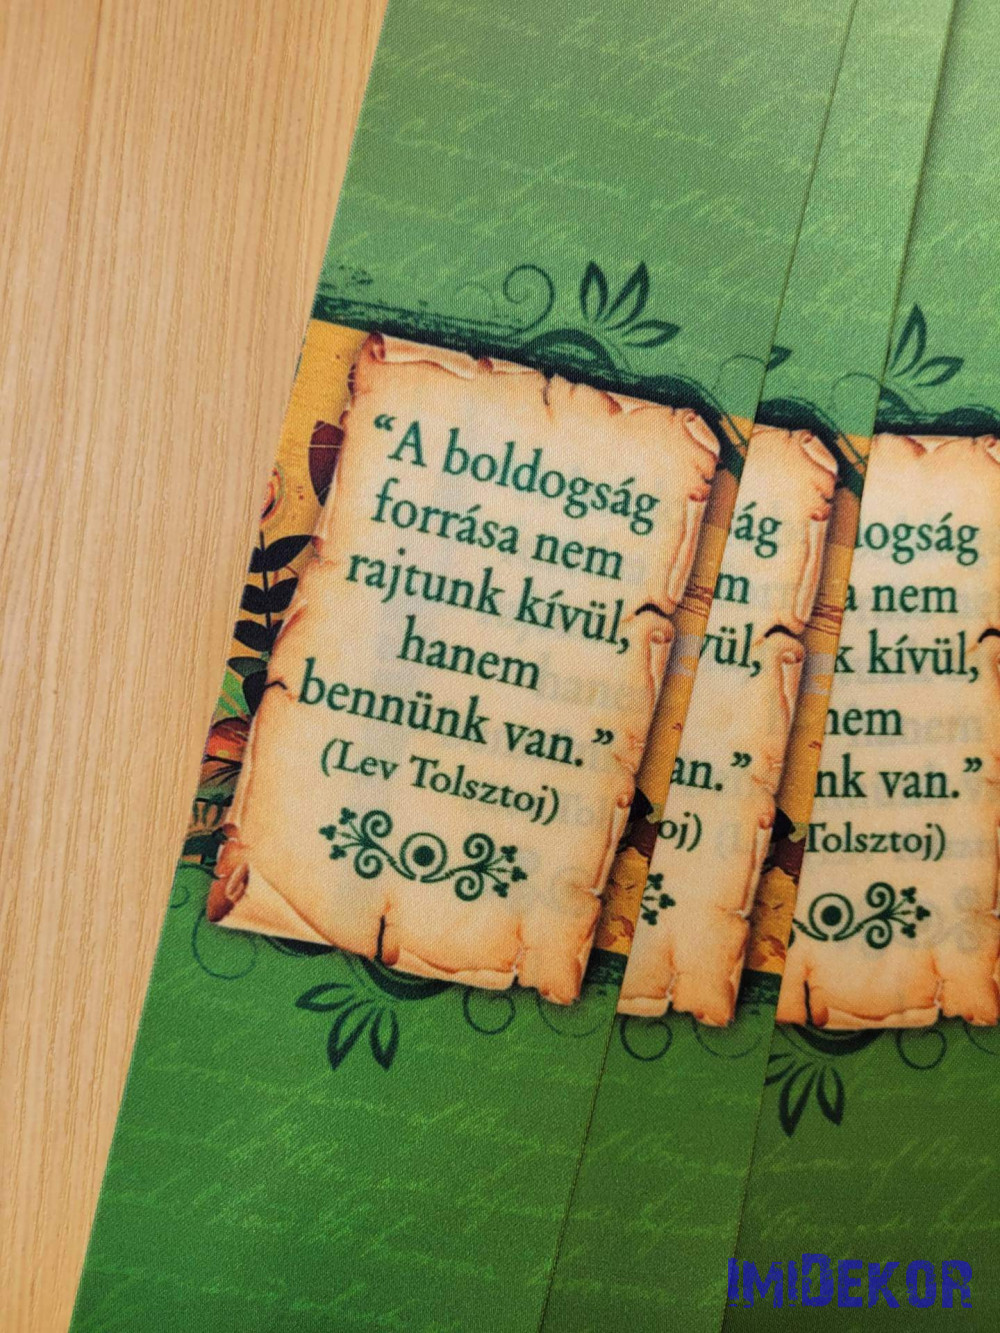 “A boldogság
forrása nem
rajtunk kívül,
hanem
bennünk van.”
(Lev Tolsztoj)
ág
m
vül,
an.”
oj)
dogság
a nem
k kívül,
nem
nk van.”
Tolsztoj)
IMIDEKOR